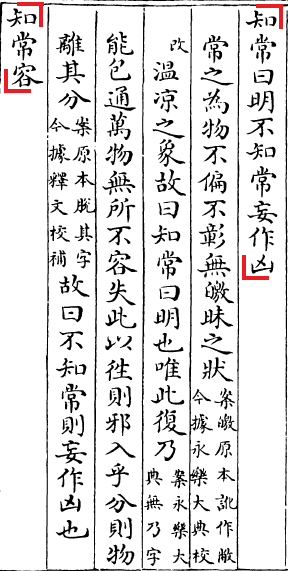 知常曰明不知常妄作凶
常之為物不偏不彰無皦昧之狀案皦原本訛作敝今據永樂大典校
改溫涼之象故曰知常曰明也唯此復乃案永樂大典無乃字
能包通萬物無所不容失此以徃則邪入乎分則物
離其分案原本脫其字今據釋文校補故曰不知常則妄作凶也
知常容